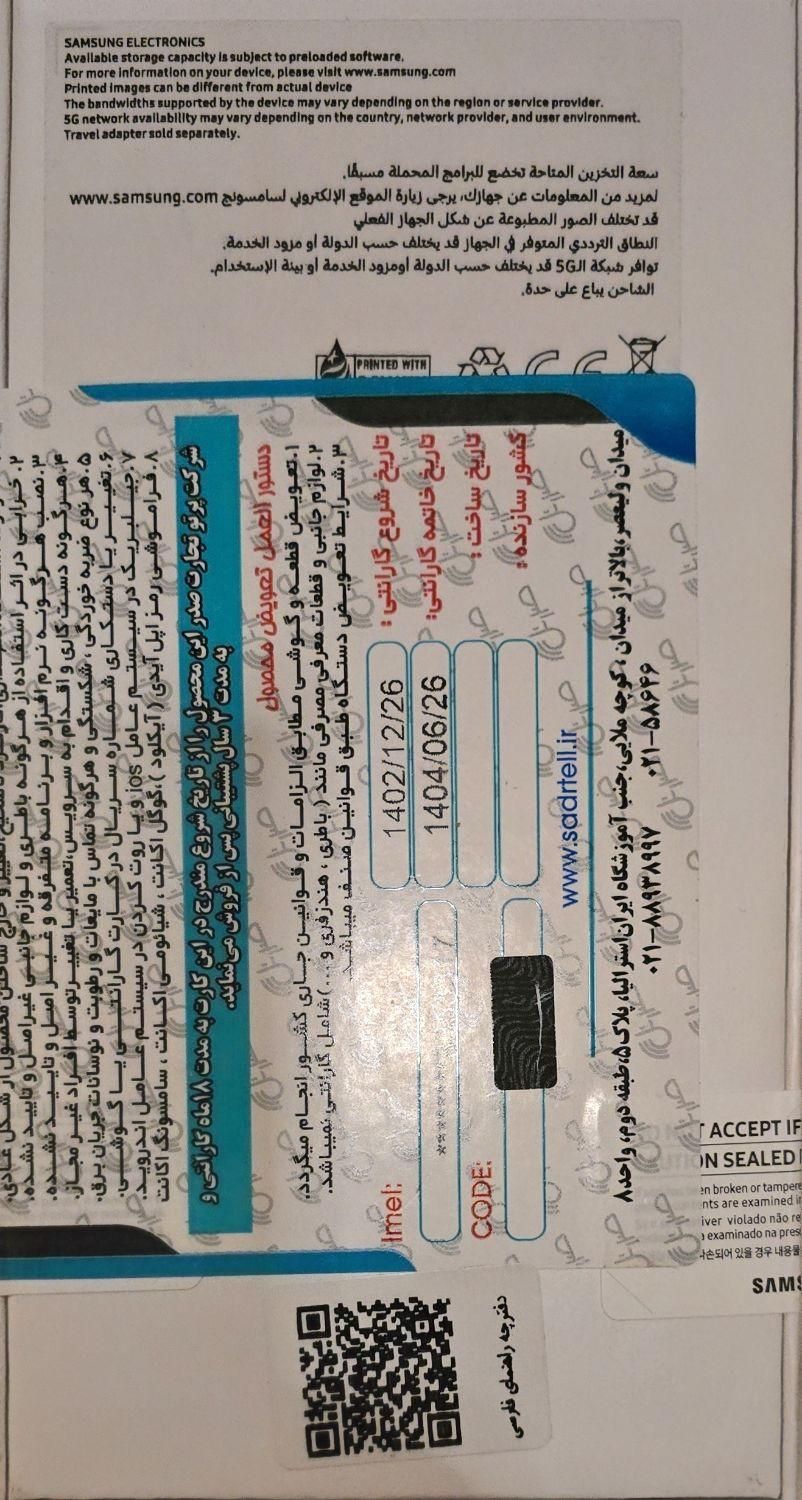 SAMSUNG ELECTRONICS
Available storage capacity is subject to preloaded software.
For more information on your device, please visit www.samsung.com
Printed images can be different from actual device
The bandwidths supported by the device may vary depending on the region or service provider.
5G network availability may vary depending on the country, network provider, and user environment.
Travel adapter sold separately.
سعة التخزين المتاحة تخضع للبرامج المحملة مسبقًا.
لمزيد من المعلومات عن جهازك، يرجى زيارة الموقع الإلكتروني لسامسونج www.samsung.com
قد تختلف الصور المطبوعة عن شكل الجهاز الفعلي
النطاق الترددي المتوفر في الجهاز قد يختلف حسب الدولة أو مزود الخدمة.
توافر شبكة الـ5G قد يختلف حسب الدولة أومزود الخدمة أو بيئة الإستخدام.
الشاحن يباع على حدة.
PRINTED WITH
۲. خرابی در اثر استفاده از هرگونه باطری و لوازم جانبی غیراصل و تایید نشده.
۳. نصب هرگونه نرم افزار و برنامه متفرقه و غیر اصل و تایید نشده.
۴. هرگونه دست کاری و اقدام به سرویس، تعمیر یا تغییر توسط افراد غیر مجاز.
۵. هر نوع ضربه خوردگی، شکستگی و هرگونه تماس با مایعات و رطوبت و نوسانات جریان برق.
۶. تغییر یا دستکاری شماره سریال در کارت گارانتی یا گوشی.
۷. جیلبریک در سیستم عامل ios و یا روت کردن در سیستم عامل اندروید.
۸. فراموشی رمز اپل آیدی ( آیکلود )، گوگل اکانت ، شیائومی اکانت ، سامسونگ اکانت
شرکت پرتو تجارت صدر این محصول را از تاریخ شروع مندرج در این کارت به مدت ۱۸ ماه گارانتی و
به مدت ۳ سال پشتیبانی پس از فروش می‌نماید.
دستور العمل تعویض محصول
۱. تعویض قطعه و گوشی مطابق الزامات و قوانین جاری کشور انجام میگردد.
۲. لوازم جانبی و قطعات معرفی مصرفی مانند ( باطری ، هندزفری و ...) شامل گارانتی نمیباشد.
۳. شرایط تعویض دستگاه طبق قوانین صنف میباشد.
تاریخ شروع گارانتی : 1402/12/26
تاریخ خاتمه گارانتی: 1404/06/26
تاریخ ساخت :
کشور سازنده :
Imei:
CODE:
www.sadrtell.ir
میدان ولیعصر، بالاتر از میدان ، کوچه ملایی، جنب آموزشگاه ایران استرالیا، پلاک ۵، طبقه دوم، واحد ۸
۰۲۱-۸۸۹۳۸۹۹۷ ۰۲۱-۵۸۶۴۶
T ACCEPT IF
ON SEALED
en broken or tampere
nts are examined i
iver violado não re
examinado na pres
손되어 있을 경우 내용물
SAMS
دفترچه راهنمای فارسی